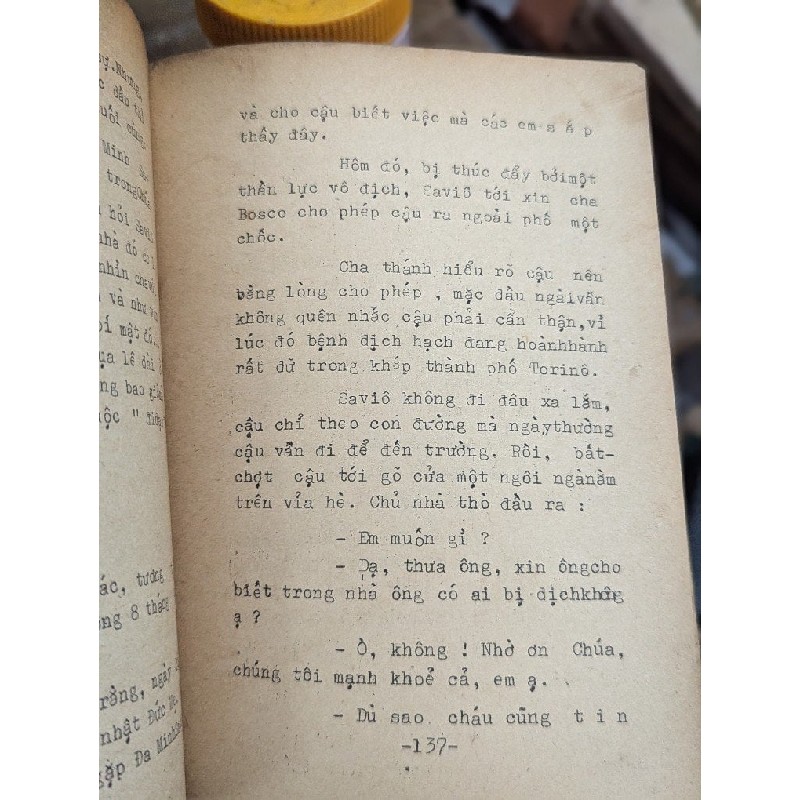 sự.Nhưng,
Minh
trong
hỏi Saviô
nhà đó
và như
bí mật đó.
lê dài
bao giờ
uộc " hiệp
ác, tương
ng 8 tháng
rằng, ngày
nhật Đức Mẹ
gặp Đa Minh
và cho cậu biết việc mà các em s ắ p
thấy đây.
Hôm đó, bị thúc đẩy bởimột
thần lực vô địch, Saviô tới xin cha
Bosco cho phép cậu ra ngoài phố một
chốc.
Cha thánh hiểu rõ cậu nên
bằng lòng cho phép , mặc dầu ngàivẫn
không quên nhắc cậu phải cẩn thận,vì
lúc đó bệnh dịch hạch đang hoànhhành
rất dữ trong khắp thành phố Torinô.
Saviô không đi đâu xa lắm,
cậu chỉ theo con đường mà ngàythường
cậu vẫn đi để đến trường. Rồi, bất-
chợt cậu tới gõ cửa một ngôi ngànằm
trên vỉa hè. Chủ nhà thò đầu ra :
- Em muốn gì ?
- Dạ, thưa ông, xin ôngcho
biết trong nhà ông có ai bị dịchkhông
ạ ?
- Ồ, không ! Nhờ ơn Chúa,
chúng tôi mạnh khoẻ cả, em ạ.
- Dù sao cháu cũng t i n
-137-